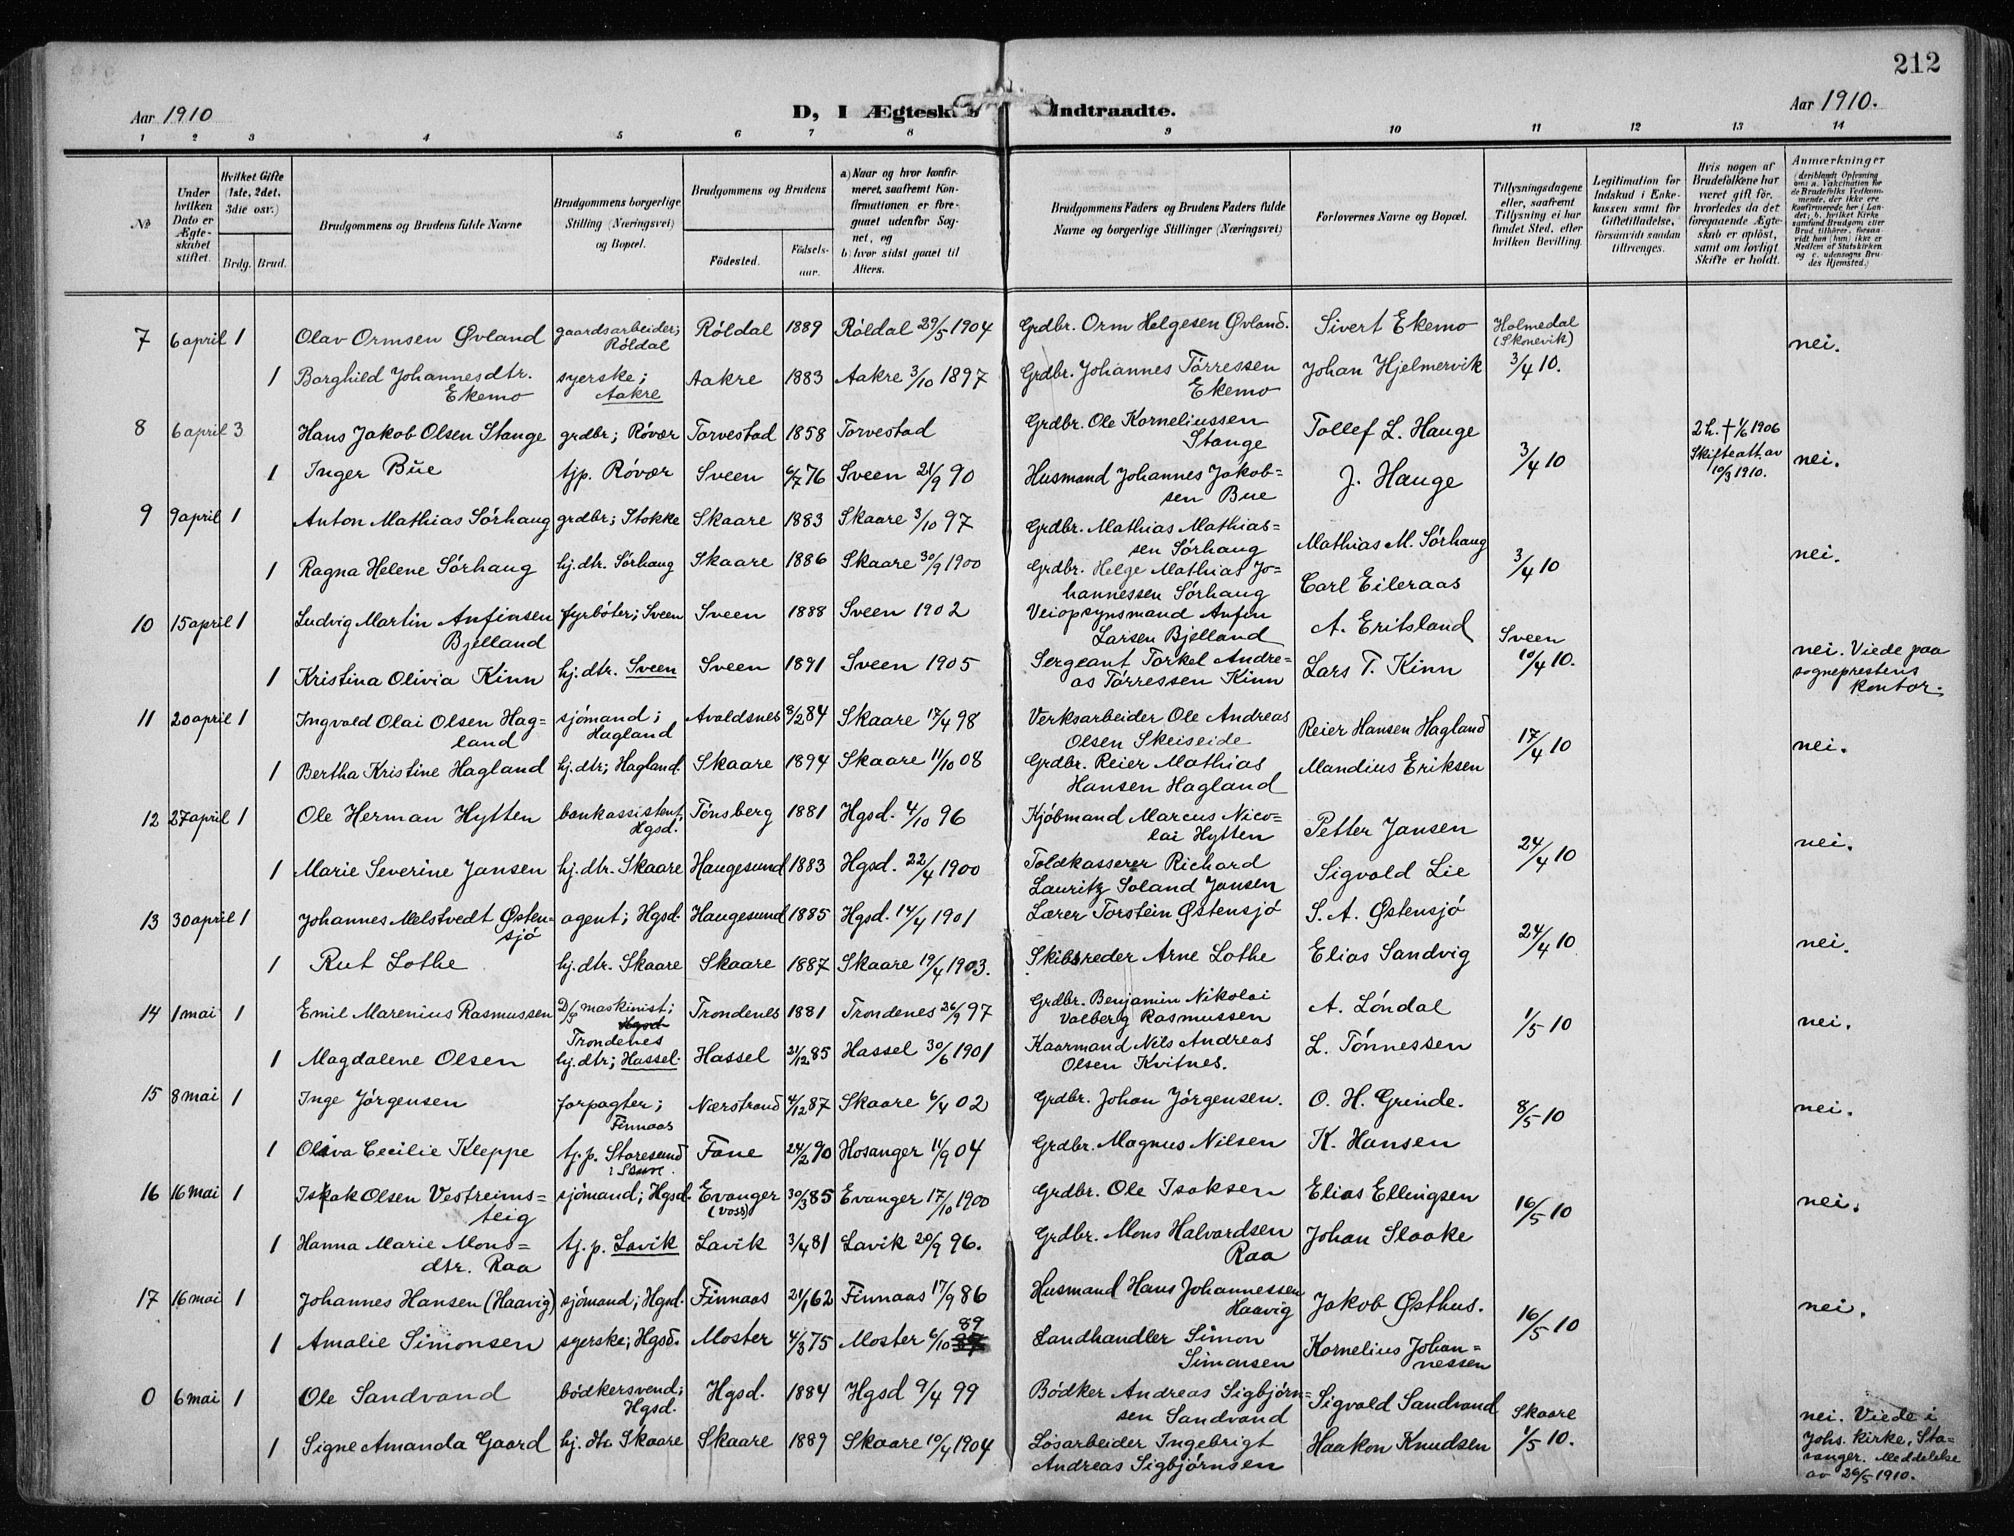 212
Aar 1910
D, I Ægtesk
Indtraadte.
Aar 1910.
1 2 3 4 5 6 7 8 9 10 11 12 13 14
№
Under hvilken Dato er Ægteskabet stiftet.
Hvilket Gifte (1ste, 2det, 3die osv.)
Brdg. Brud.
Brudgommens og Brudens fulde Navne
Brudgommens borgerlige Stilling (Næringsvei) og Bopæl.
Brudgommens og Brudens
Födested.
Födselsaar.
a) Naar og hvor konfirmeret, saafremt Konfirmationen er foregaaet udenfor Sognet, og
b) hvor sidst gaaet til Alters.
Brudgommens Faders og Brudens Faders fulde Navne og borgerlige Stillinger (Næringsvei)
Forlovernes Navne og Bopæl.
Tillysningsdagene eller, saafremt Tillysning ei har fundet Sted, efter hvilken Bevilling.
Legitimation for Indskud i Enkekassen samt for Giftetilladelse, forsaavidt saadan tiltrænges.
Hvis nogen af Brudefolkene har været gift før, hvorledes da det foregaaende Ægteskab er opløst, samt om lovligt Skifte er holdt.
Anmærkninger (deriblandt Oplysning om: a. Vakcination for de Brudefolks Vedkommende, der ikke ere konfirmerede her i Landet; b. hvilket Kirkesamfund Brudgom eller Brud tilhører, forsaavidt han (hun) ikke er Medlem af Statskirken og c. udensogns Brudes Hjemsted.)
7 6 april 1 Olav Ormsen Øvland gaardsarbeider; Röldal Röldal 1889 Röldal 29/5 1904 Grdbr. Orm Helgesen Øvland. Sivert Ekemo Holmedal (Skonevik) 3/4 10. nei.
1 Borghild Johannesdtr. Ekemo syerske; Aakre Aakre 1883 Aakre 3/10 1897 Grdbr. Johannes Törressen Ekemo Johan Hjelmervik
8 6 april 3 Hans Jakob Olsen Stange grdbr; Rövær Torvestad 1858 Torvestad Grdbr. Ole Korneliussen Stange Tollef L. Hauge 3/4 10 2 h. † 1/6 1906 Skifteatt. av 10/3 1910. nei.
1 Inger Bue tjp. Rövær Sveen 6/7 76 Sveen 21/9 90 Husmand Johannes Jakobsen Bue J. Hauge
9 9 april 1 Anton Mathias Sörhaug grdbr; Stokke Skaare 1883 Skaare 3/10 97 Grdbr. Mathias Mathiassen Sörhaug Mathias M. Sörhaug 3/4 10 nei.
1 Ragna Helene Sörhaug hj. dtr. Sörhaug Skaare 1886 Skaare 30/9 1900 Grdbr. Helge Mathias Johannessen Sörhaug Carl Eileraas
10 15 april 1 Ludvig Martin Anfinsen Bjelland fyrböter; Sveen Sveen 1888 Sveen 1902 Veiopsynsmand Anfin Larsen Bjelland A. Eritsland Sveen 10/4 10. nei. Viede paa sogneprestens kontor.
1 Kristina Olivia Kinn hj. dtr. Sveen Sveen 1891 Sveen 1905 Sergeant Torkel Andreas Törressen Kinn Lars T. Kinn
11 20 april 1 Ingvald Olai Olsen Hagland sjömand; Hagland Avaldsnes 8/2 84 Skaare 17/4 98 Verksarbeider Ole Andreas Olsen Skeiseide Reier Hansen Hagland 17/4 10 nei.
1 Bertha Kristine Hagland hj. dtr; Hagland. Skaare 1894 Skaare 11/10 08 Grdbr. Reier Mathias Hansen Hagland Mandius Eriksen
12 27 april 1 Ole Herman Hytten bankassistent, Hgsd. Tönsberg 1881 Hgsd. 4/10 96 Kjöbmand Marcus Nicolai Hytten Petter Jansen 24/4 10 nei.
1 Marie Severine Jansen hj. dtr. Skaare Haugesund 1883 Hgsd. 22/4 1900 Toldkasserer Richard Lauritz Soland Jansen Sigvald Lie
13 30 april 1 Johannes Melstvedt Östensjö agent; Hgsd. Haugesund 1885 Hgsd. 14/4 1901 Lærer Torstein Östensjö S. A. Östensjö 24/4 10 nei.
1 Rut Lothe hj. dtr. Skaare Skaare 1887 Skaare 19/4 1903. Skibsreder Arne Lothe Elias Sandvig
14 1 mai 1 Emil Marenius Rasmussen D/S maskinist; Hgsd Trondenes Trondenes 1881 Trondenes 26/9 97 Grdbr. Benjamin Nikolai Valberg Rasmussen A. Löndal 1/5 10 nei.
1 Magdalene Olsen hj. dtr; Hassel. Hassel 21/12 85 Hassel 30/6 1901 Kaarmand Nils Andreas Olsen Kvitnes. L. Tönnessen
15 8 mai 1 Inge Jörgensen forpagter; Finnaas Nærstrand 4/12 87 Skaare 6/4 02 Grdbr. Johan Jörgensen. O. H. Grinde. 8/5 10 nei.
1 Oliva Cecilie Kleppe tj. p. Storesund i Skaare. Fane 24/2 90 Hosanger 11/9 04 Grdbr. Magnus Nilsen K. Hansen
16 16 mai 1 Isak Olsen Vestreimsteig sjömand; Hgsd. Evanger (Voss) 30/3 85 Evanger 17/10 1900 Grdbr. Ole Isaksen Elias Ellingsen 16/5 10 nei.
1 Hanna Marie Monsdtr. Raa tj. p. Lavik Lavik 3/4 81 Lavik 20/9 96. Grdbr. Mons Halvardsen Raa Johan Slaake
17 16 mai 1 Johannes Hansen (Haavig) sjömand; Hgsd. Finnaas 21/1 62 Finnaas 17/9 86 Husmand Hans Johannessen Haavig Jakob Östhus. 16/5 10 nei.
1 Amalie Simonsen syerske; Hgsd. Moster 4/3 75 Moster 6/10 89 Landhandler Simon Simonsen Kornelius Johannessen
0 6 mai 1 Ole Sandvand bödkersvend; Hgsd. Hgsd. 1884 Hgsd 9/4 99 Bödker Andreas Sigbjörnsen Sandvand Sigvald Sandvand Skaare 1/5 10. nei. Viede i Johs. kirke, Stavanger. Meddelelse av 26/5 1910.
1 Signe Amanda Gaard hj. dtr Skaare Skaare 1889 Skaare 10/4 1904 Lösarbeider Ingebrigt Andreas Sigbjörnsen Haakon Knudsen